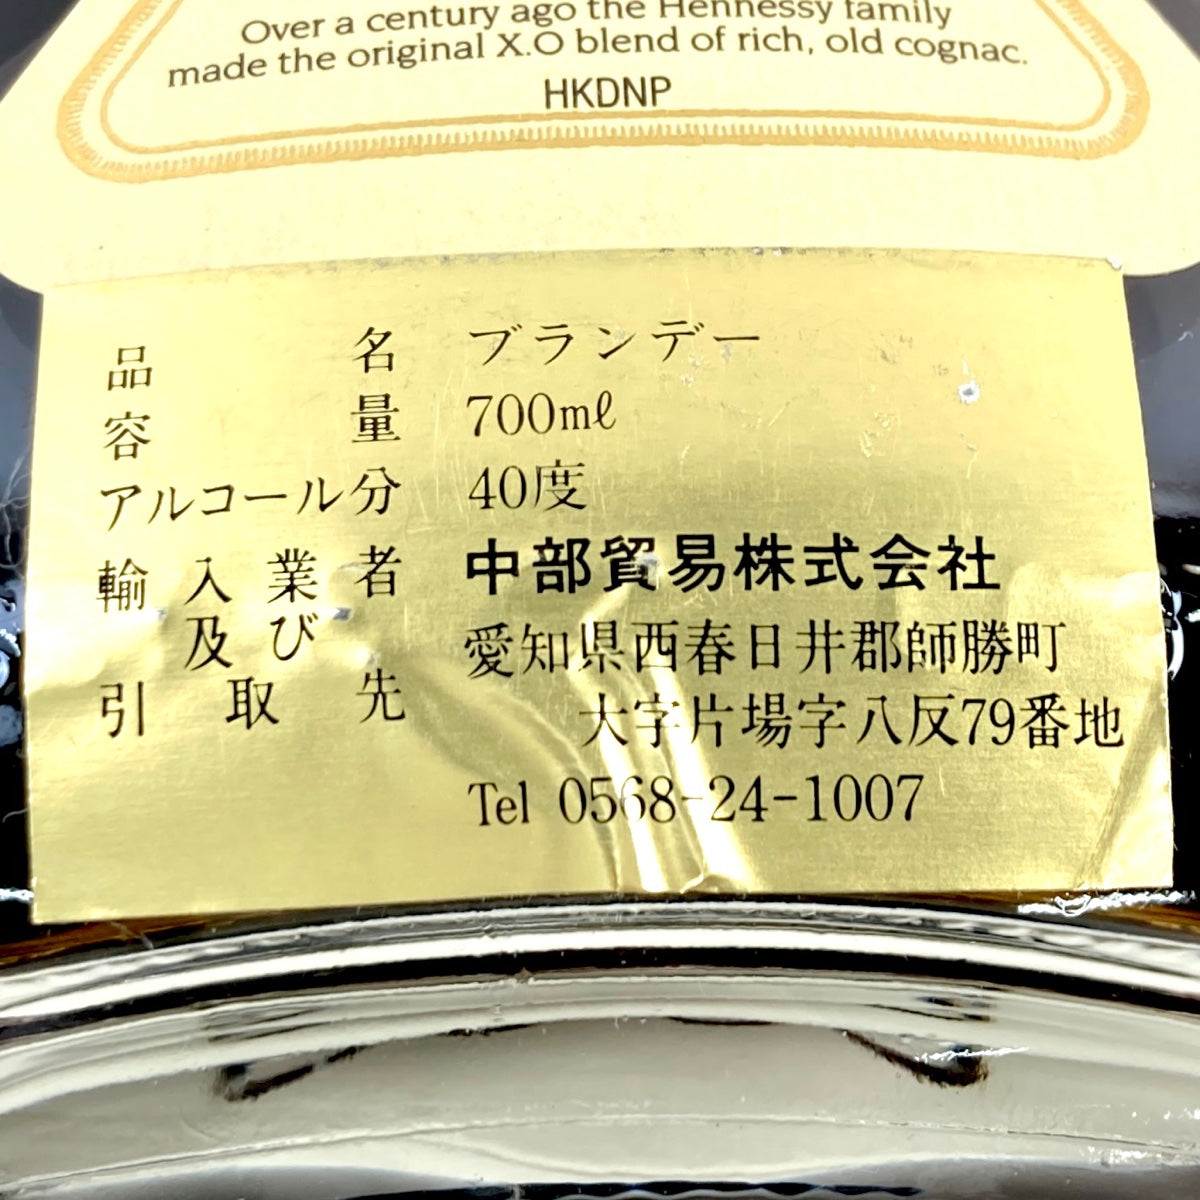 Over a century ago the Hennessy family
made the original X.O blend of rich, old cognac.
HKDNP
品名 ブランデー
容量 700mℓ
アルコール分 40度
輸入業者 中部貿易株式会社
及び 愛知県西春日井郡師勝町
引取先 大字片場字八反79番地
Tel 0568-24-1007